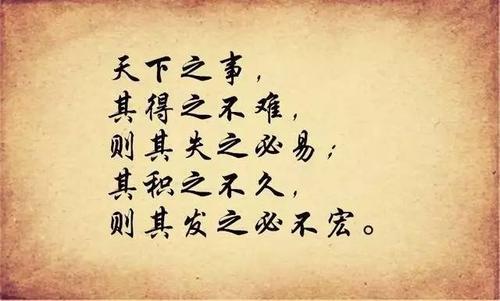 天下之事，
其得之不难，
则其失之必易；
其积之不久，
则其发之必不宏。